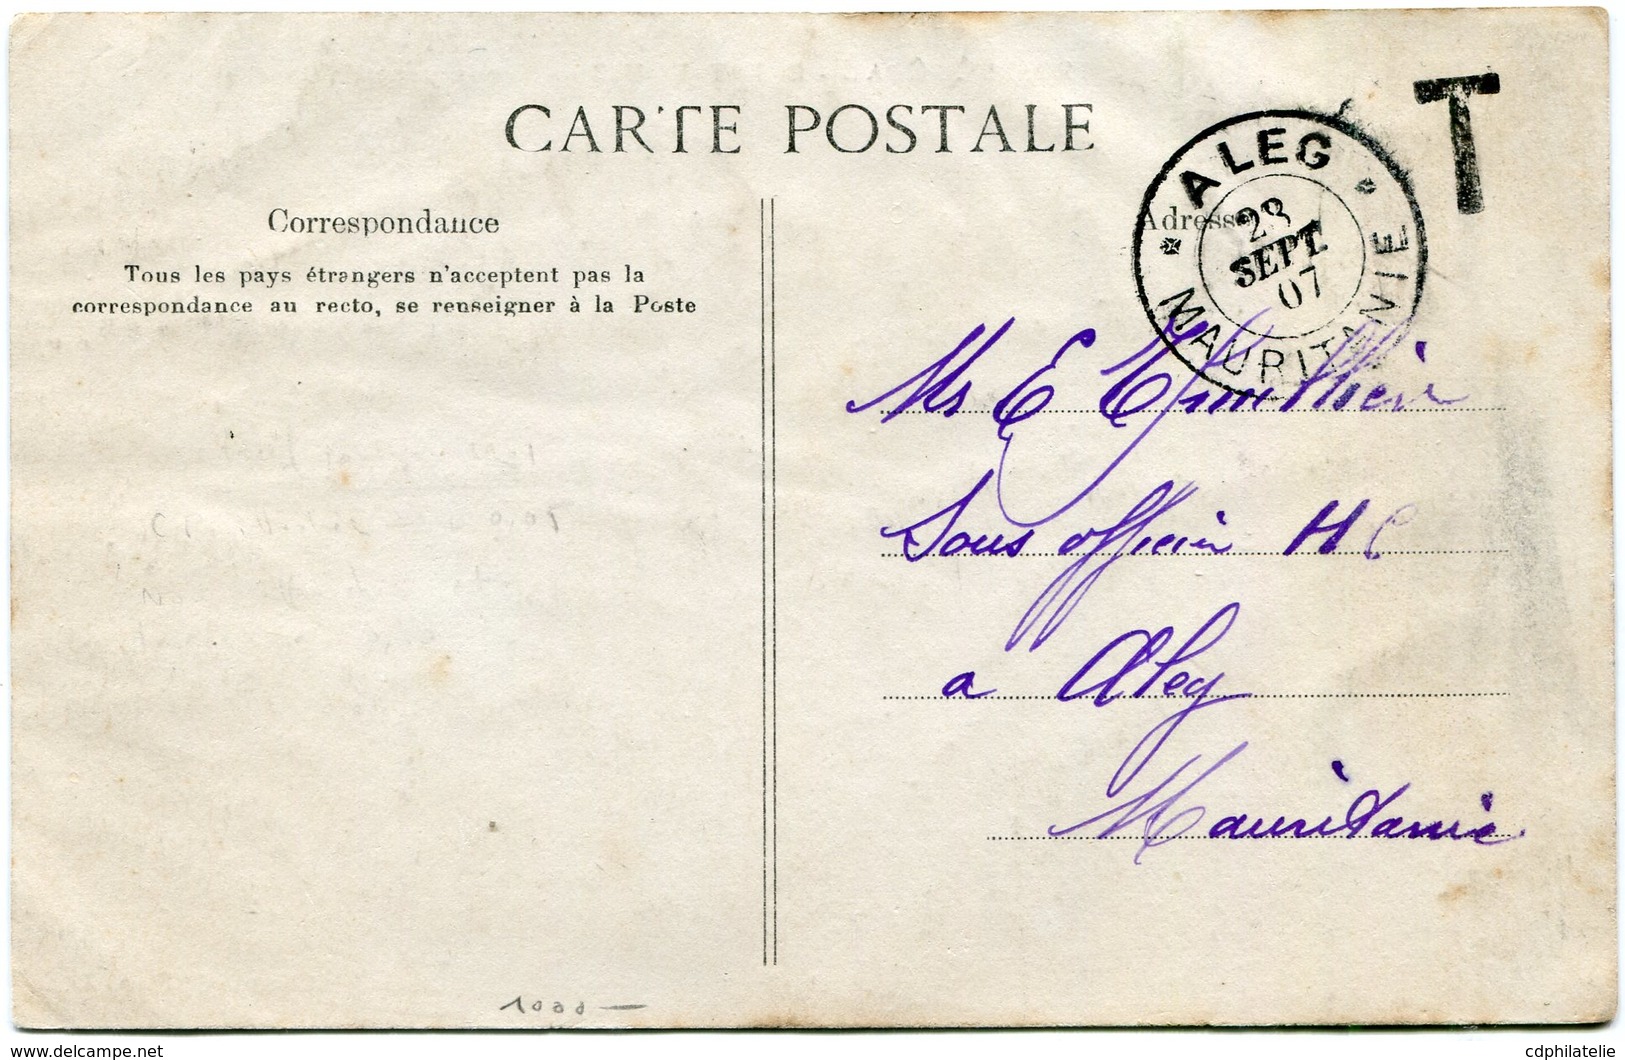 CARTE POSTALE
T
ALEG
23
SEPT.
07
MAURITANIE
Correspondance
Adresse
Tous les pays étrangers n'acceptent pas la
correspondance au recto, se renseigner à la Poste
Mr E
Sous officier H C
a Aleg
Mauritanie
1000 —
delcampe.net
cdphilatelie